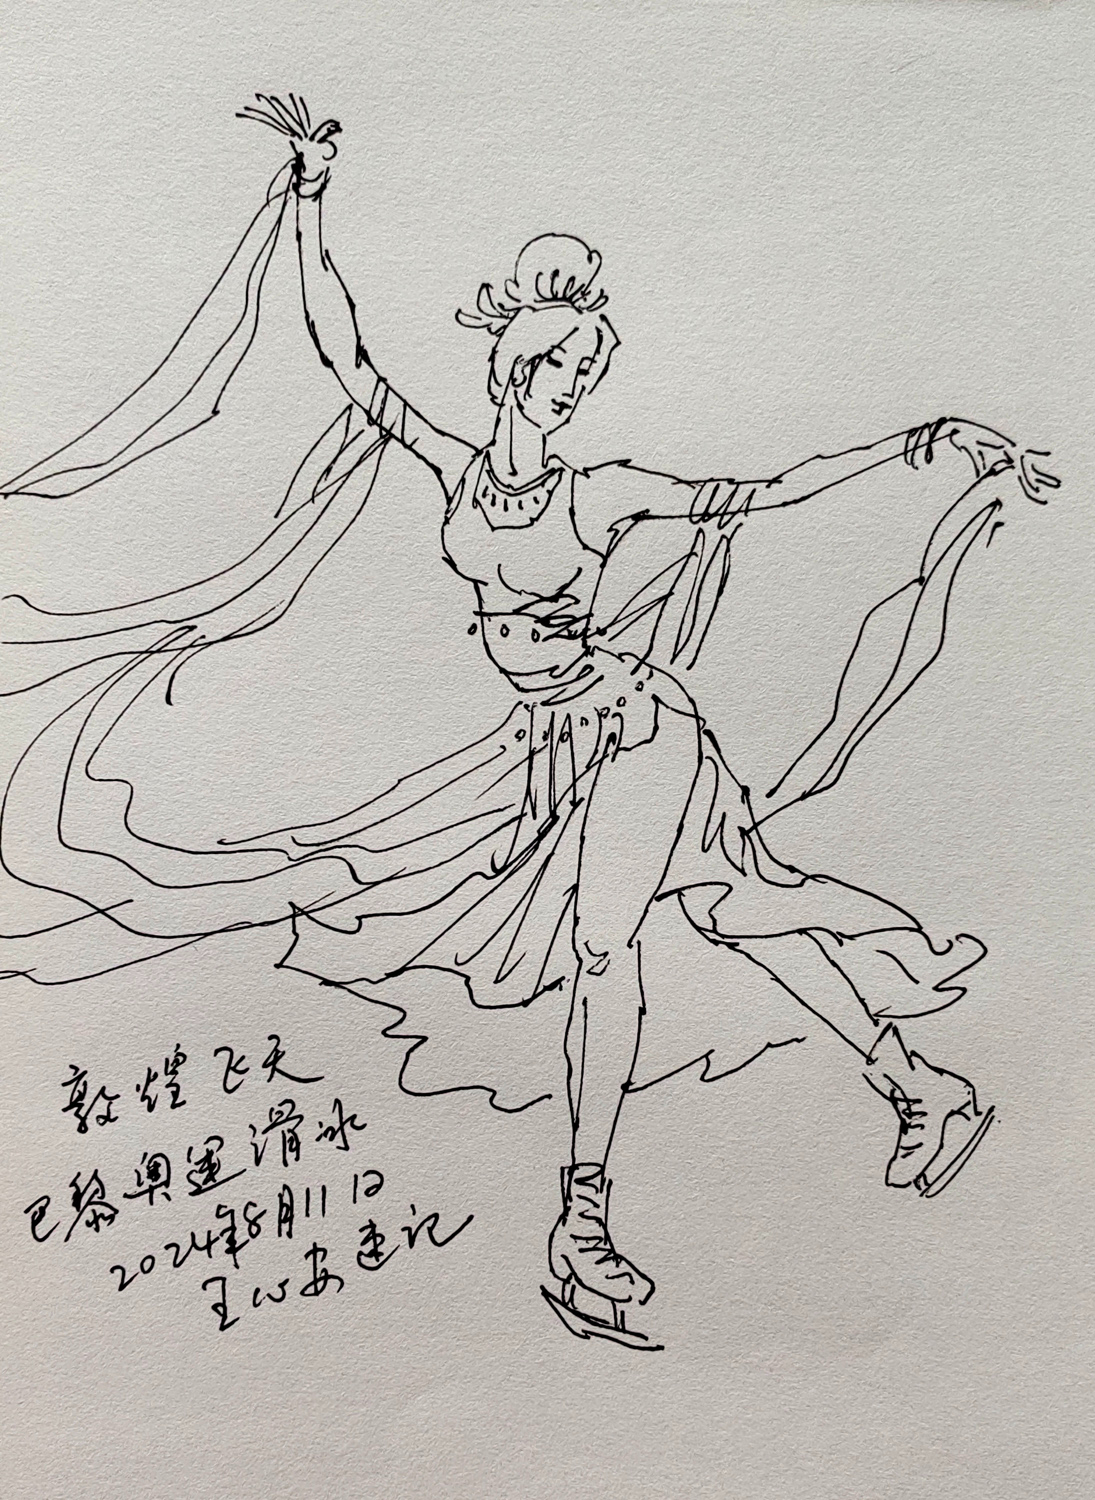 敦煌飞天
巴黎奥运滑冰
2024年8月11日
王心安速记